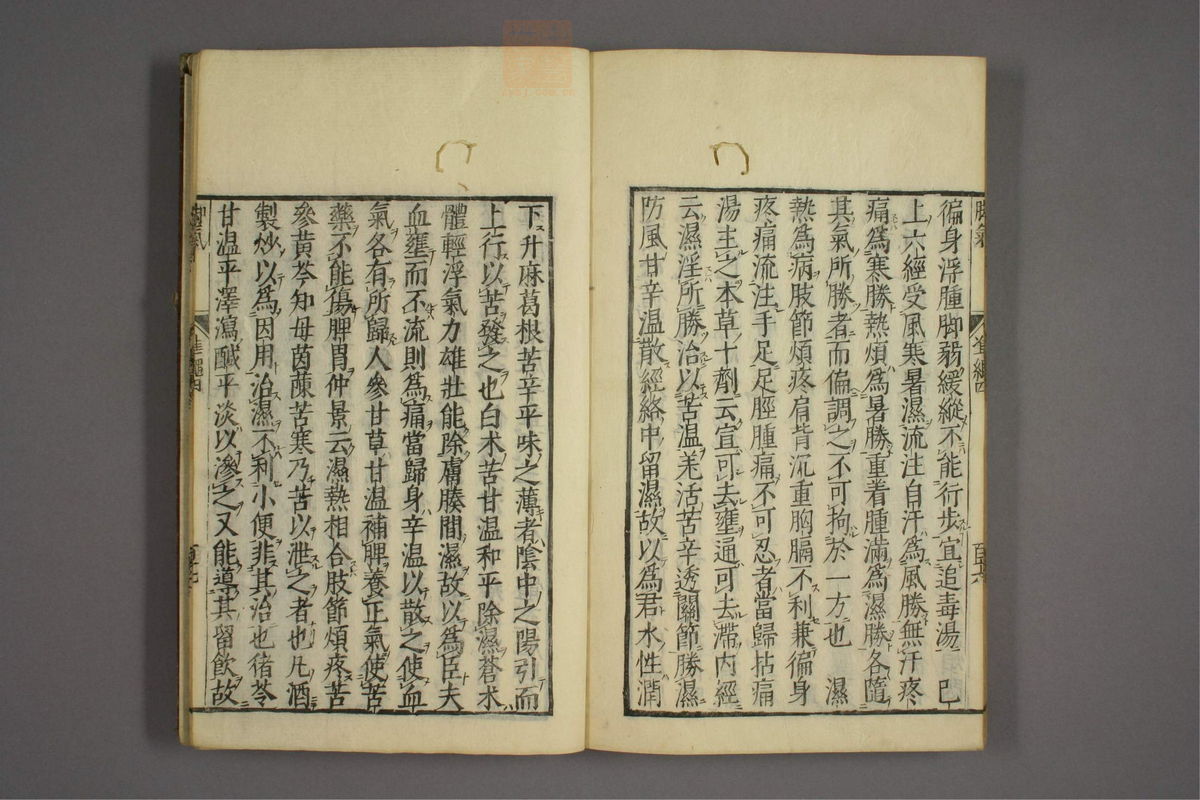 脚氣 準繩四 百六
徧身浮腫脚弱緩縱不能行步宜追毒湯 巳
上六經受風寒暑濕流注自汗為風勝無汗疼
痛為寒勝熱煩為暑勝重着腫滿為濕勝各隨
其氣所勝者而偏調之不可拘於一方也 濕
熱為病肢節煩疼肩背沉重胸膈不利兼徧身
疼痛流注手足足脛腫痛不可忍者當歸拈痛
湯主之本草十劑云宣可去壅通可去滯內經
云濕淫所勝治以苦温羗活苦辛透關節勝濕
防風甘辛温散經絡中留濕故以為君水性潤
下升麻葛根苦辛平味之薄者陰中之陽引而
上行以苦發之也白术苦甘温和平除濕蒼术
體輕浮氣力雄壯能除膚腠間濕故以為臣夫
血壅而不流則為痛當歸身辛温以散之使血
氣各有所歸人參甘草甘温補脾養正氣使苦
藥不能傷脾胃仲景云濕熱相合肢節煩疼苦
參黃芩知母茵蔯苦寒乃苦以泄之者也凡酒
製炒以為因用治濕不利小便非其治也猪苓
甘温平澤瀉鹹平淡以滲之又能導其留飲故
脚氣 準繩四 百七